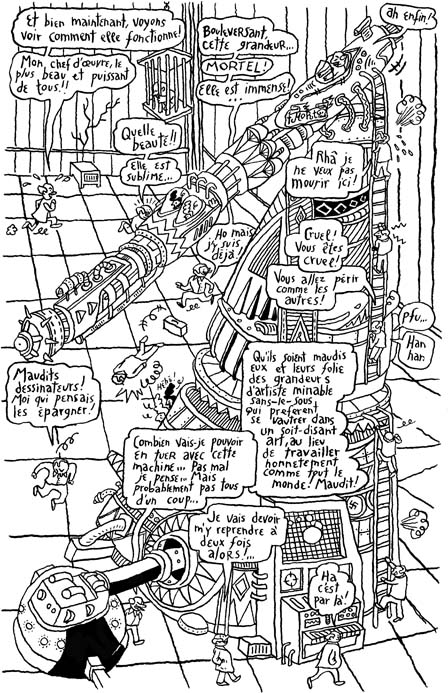 Et bien maintenant, voyons
voir comment elle fonctionne!
Mon, chef d'œuvre, le
plus beau et puissant
de tous!!
Bouleversant,
cette grandeur...
MORTEL!
Elle est immense!
ah enfin!
Quelle
beauté!!
Elle est
sublime...
Rhâ je
ne veux pas
mourir ici!
Ho mais
j'y suis
déjà!
Cruel!
Vous êtes
cruel!
Vous allez périr
comme les
autres!
Pfu...
Han
han
Maudits
dessinateurs!
Moi qui pensais
les épargner!
Hééé!
Qu'ils soient maudis
eux et leurs folie
des grandeurs
d'artiste minable
sans-le-sous,
qui préfèrent
se vautrer dans
un soit-disant
art, au lieu
de travailler
honnetement
comme tout le
monde! Maudit!
Combien vais-je pouvoir
en tuer avec cette
machine... Pas mal
je pense.. Mais
probablement pas tous
d'un coup...
Je vais devoir
m'y reprendre à
deux fois
alors!...
Ha
c'est
par là!